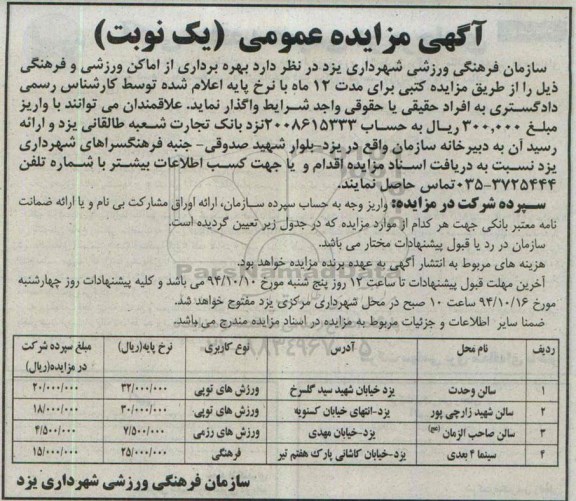 آگهی مزایده عمومی (یک نوبت)
سازمان فرهنگی ورزشی شهرداری یزد در نظر دارد بهره برداری از اماکن ورزشی و فرهنگی
ذیل را از طریق مزایده کتبی برای مدت ۱۲ ماه با نرخ پایه اعلام شده توسط کارشناس رسمی
دادگستری به افراد حقیقی یا حقوقی واجد شرایط واگذار نماید. علاقمندان می توانند با واریز
مبلغ ۳۰۰,۰۰۰ ریال به حساب ۲۰۰۸۶۱۵۳۳۳نزد بانک تجارت شعبه طالقانی یزد و ارائه
رسید آن به دبیرخانه سازمان واقع در یزد- بلوار شهید صدوقی- جنبه فرهنگسراهای شهرداری
یزد نسبت به دریافت اسناد مزایده اقدام و یا جهت کسب اطلاعات بیشتر با شماره تلفن
۰۳۵-۳۷۲۵۴۴۴تماس حاصل نمایند.
سپرده شرکت در مزایده: واریز وجه به حساب سپرده سازمان، ارائه اوراق مشارکت بی نام و یا ارائه ضمانت
نامه معتبر بانکی جهت هر کدام از موارد مزایده که در جدول زیر تعیین گردیده است.
سازمان در رد یا قبول پیشنهادات مختار می باشد.
هزینه های مربوط به انتشار آگهی به عهده برنده مزایده خواهد بود.
آخرین مهلت قبول پیشنهادات تا ساعت ۱۲ روز پنج شنبه مورخ ۹۴/۱۰/۱۰ می باشد و کلیه پیشنهادات روز چهارشنبه
مورخ ۹۴/۱۰/۱۶ ساعت ۱۰ صبح در محل شهرداری مرکزی یزد مفتوح خواهد شد.
ضمنا سایر اطلاعات و جزئیات مربوط به مزایده در اسناد مزایده مندرج می باشد.
ردیف نام محل آدرس نوع کاربری نرخ پایه(ریال) مبلغ سپرده شرکت در مزایده(ریال)
۱ سالن وحدت یزد خیابان شهید سید گلسرخ ورزش های توپی ۳۲/۰۰۰/۰۰۰ ۲۰/۰۰۰/۰۰۰
۲ سالن شهید زارچی پور یزد-انتهای خیابان کسنویه ورزش های توپی ۳۰/۰۰۰/۰۰۰ ۱۸/۰۰۰/۰۰۰
۳ سالن صاحب الزمان (عج) یزد-خیابان مهدی ورزش های رزمی ۷/۵۰۰/۰۰۰ ۴/۵۰۰/۰۰۰
۴ سینما ۴ بعدی یزد-خیابان کاشانی پارک هفتم تیر فرهنگی ۲۵/۰۰۰/۰۰۰ ۱۵/۰۰۰/۰۰۰
سازمان فرهنگی ورزشی شهرداری یزد
ParsNamadData